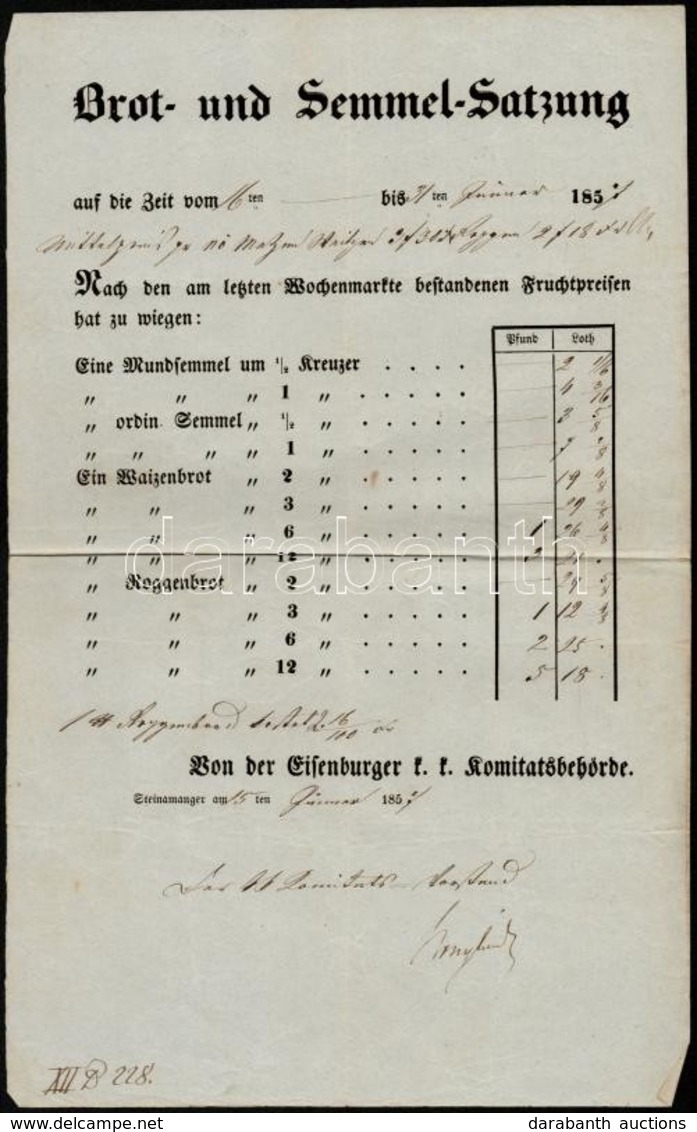 Brot- und Semmel-Satzung
auf die Zeit vom 16ten bis 31ten Jänner 1857
Mittelpreis pr nö Metzen Weitzen 3 f 30 Roggen 2 f 18
Nach den am letzten Wochenmarkte bestandenen Fruchtpreisen
hat zu wiegen:
Pfund Loth
Eine Mundsemmel um 1/2 Kreuzer . . . . 2 1/16
„ „ „ 1 „ . . . . . 4 3/16
„ ordin. Semmel „ 1/2 „ . . . . . 3 5/8
„ „ „ „ 1 „ . . . . . 7 2/8
Ein Waizenbrot „ 2 „ . . . . . 19 4/8
„ „ „ 3 „ . . . . . 29 2/8
„ „ „ 6 „ . . . . . 1 26 4/8
„ „ „ 12 „ . . . . . 3 21 .
„ Roggenbrot „ 2 „ . . . . . 28 5/8
„ „ „ 3 „ . . . . . 1 12 4/8
„ „ „ 6 „ . . . . . 2 25 .
„ „ „ 12 „ . . . . . 5 18 .
1 ℔ Roggenbrod kostet 2 16/100 xr
Von der Eisenburger k. k. Komitatsbehörde.
Steinamanger am 15 ten Jänner 1857
Der kk Komitats-Vorstand
XII D 228.
darabanth
www.darabanth.com
darabanth auctions